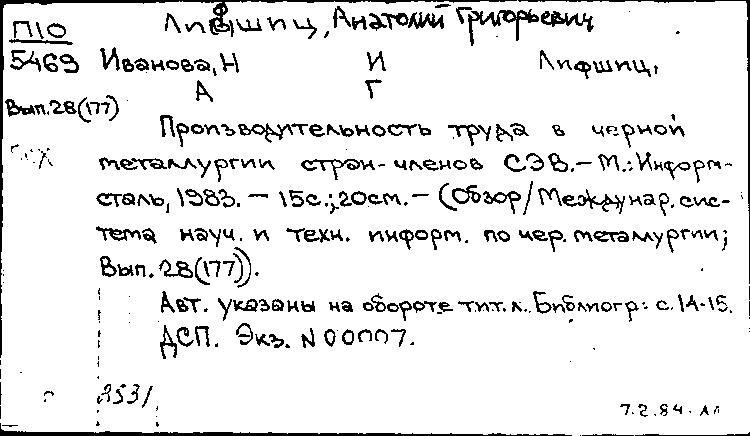 П10 Лифшиц, Анатолий Григорьевич
5469 Иванова, Н И Лифшиц,
А Г
Вып.28(177)
Производительность труда в черной
металлургии стран-членов СЭВ.- М.: Информ-
сталь, 1983. - 15с.; 20см. - (Обзор/Междунар. сис-
тема науч. и техн. информ. по чер. металлургии;
Вып. 28(177)).
Авт. указаны на обороте тит. л. Библиогр: с. 14-15.
ДСП. Экз. N 00007.
2531
7.2.84. АЛ